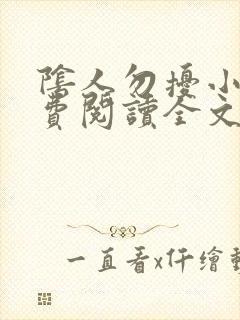 陰人勿擾小
費閱讀全文
一直看x仟繪動